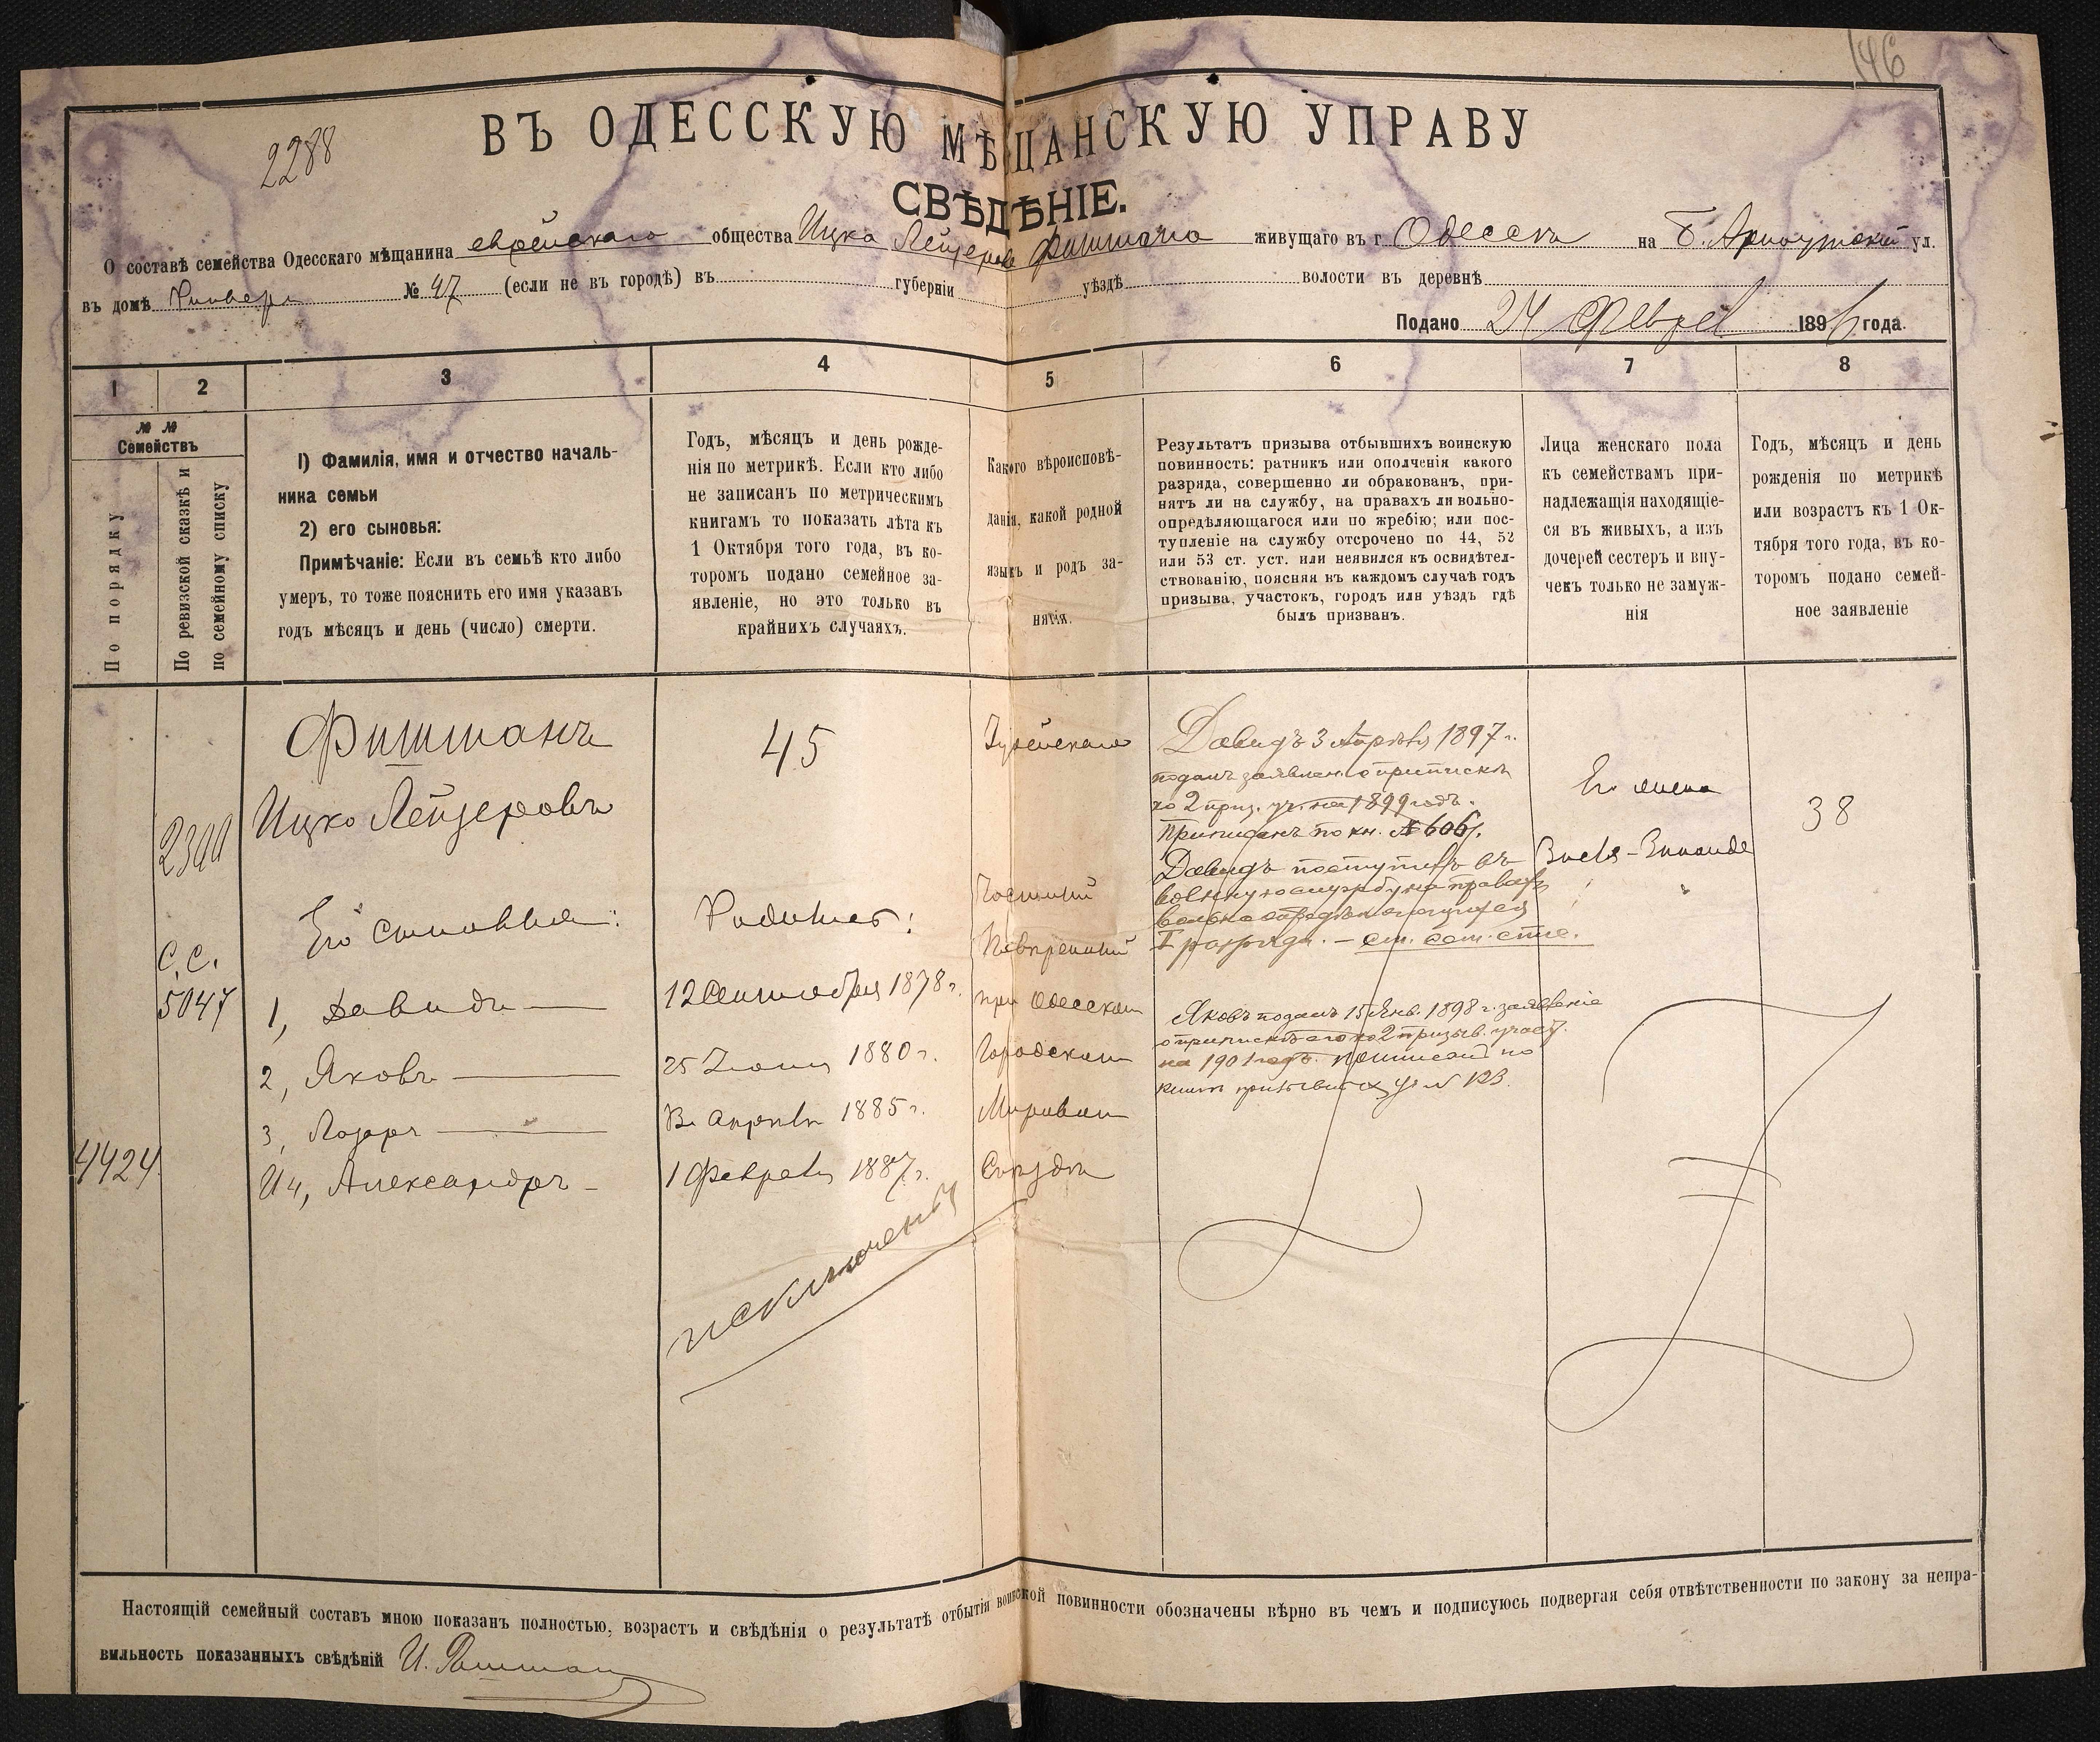 146
2288
ВЪ ОДЕССКУЮ МѢЩАНСКУЮ УПРАВУ
СВѢДѢНІЕ.
О составѣ семейства Одесскаго мѣщанина еврейскаго общества Ицка Лейзерова Фишмана живущаго въ г. Одессѣ на Б. Арнаутской ул.
въ домѣ № 47 (если не въ городѣ) въ губерніи уѣздѣ волости въ деревнѣ
Подано 24 Феврал 1896 года.
1 2 3 4 5 6 7 8
№ №
Семействъ
По порядку
По ревизской сказкѣ и
по семейному списку
1) Фамилія, имя и отчество началь-
ника семьи
2) его сыновья:
Примѣчаніе: Если въ семьѣ кто либо
умеръ, то тоже пояснить его имя указавъ
годъ мѣсяцъ и день (число) смерти.
Годъ, мѣсяцъ и день рожде-
нія по метрикѣ. Если кто либо
не записанъ по метрическимъ
книгамъ то показать лѣта къ
1 Октября того года, въ ко-
торомъ подано семейное за-
явленіе, но это только въ
крайнихъ случаяхъ.
Какого вѣроисповѣ-
данія, какой родной
языкъ и родъ за-
нятія.
Результатъ призыва отбывшихъ воинскую
повинность: ратникъ или ополченія какого
разряда, совершенно ли обракованъ, при-
нятъ ли на службу, на правахъ ли вольно-
опредѣляющагося или по жребію; или пос-
тупленіе на службу отсрочено по 44, 52
или 53 ст. уст. или неявился къ освидѣтел-
ствованію, поясняя въ каждомъ случаѣ годъ
призыва, участокъ, городъ или уѣздъ гдѣ
былъ призванъ.
Лица женскаго пола
къ семействамъ при-
надлежащія находящіе-
ся въ живыхъ, а изъ
дочерей сестеръ и вну-
чекъ только не замуж-
нія
Годъ, мѣсяцъ и день
рожденія по метрикѣ
или возрастъ къ 1 Ок-
тября того года, въ ко-
торомъ подано семей-
ное заявленіе
4424
2300
С.С.
5047
Фишманъ
Ицко Лейзеровъ
Его сыновья:
1, Давидъ
2, Яковъ
3, Лазарь
и 4, Александръ
45
Родились:
12 Сентября 1878 г.
25 Іюня 1880 г.
В. Апрѣль 1885 г.
1 Февраля 1887 г.
исключены
Іудейскаго
Частный
Повѣренный
при Одесском
Городском
Мировом
Съѣздѣ
Давидъ 3 Апрѣля 1897 г.
подалъ заявлен. о припискѣ
ко 2 приз. уч. на 1899 годъ.
Приписанъ по кн. № 606.
Давидъ поступилъ въ
военную службу на правахъ
вольноопредѣляющагося
I разряда.
Яковъ подалъ 15 Янв. 1898 г. заявленіе
о припискѣ его ко 2 призыв. участ.
на 1901 годъ. приписан по
книгѣ
Его жена
38
Настоящій семейный составъ мною показанъ полностью, возрастъ и свѣдѣнія о результатѣ отбытія воинской повинности обозначены вѣрно въ чемъ и подписуюсь подвергая себя отвѣтственности по закону за непра-
вильность показанныхъ свѣдѣній И. Фишман